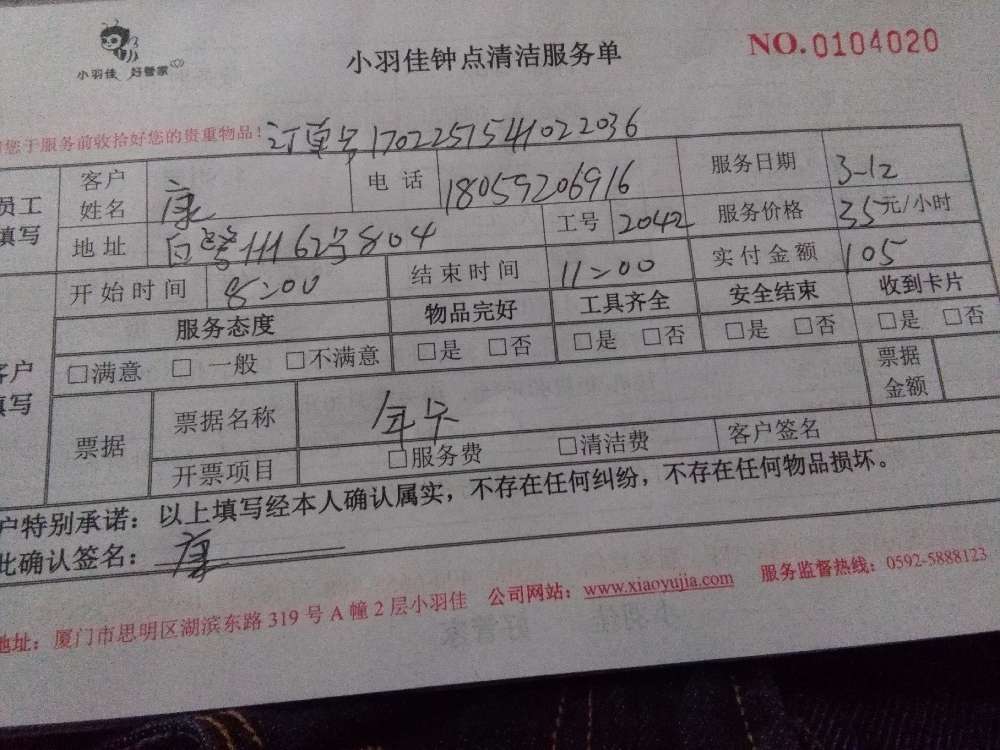 小羽佳 好管家
小羽佳钟点清洁服务单
NO.0104020
您于服务前收拾好您的贵重物品!
订单号1702251541022036
员工填写 客户姓名 康 电话 18059206916 服务日期 3-12
地址 白鹭洲162号804 工号 2042 服务价格 35元/小时
开始时间 8:00 结束时间 11:00 实付金额 105
客户填写 服务态度 物品完好 工具齐全 安全结束 收到卡片
□满意 □一般 □不满意 □是 □否 □是 □否 □是 □否 □是 □否
票据 票据名称 年卡 票据金额
开票项目 □服务费 □清洁费 客户签名
户特别承诺:以上填写经本人确认属实,不存在任何纠纷,不存在任何物品损坏。
此确认签名:康
地址:厦门市思明区湖滨东路319号A幢2层小羽佳 公司网站:www.xiaoyujia.com 服务监督热线:0592-5888123